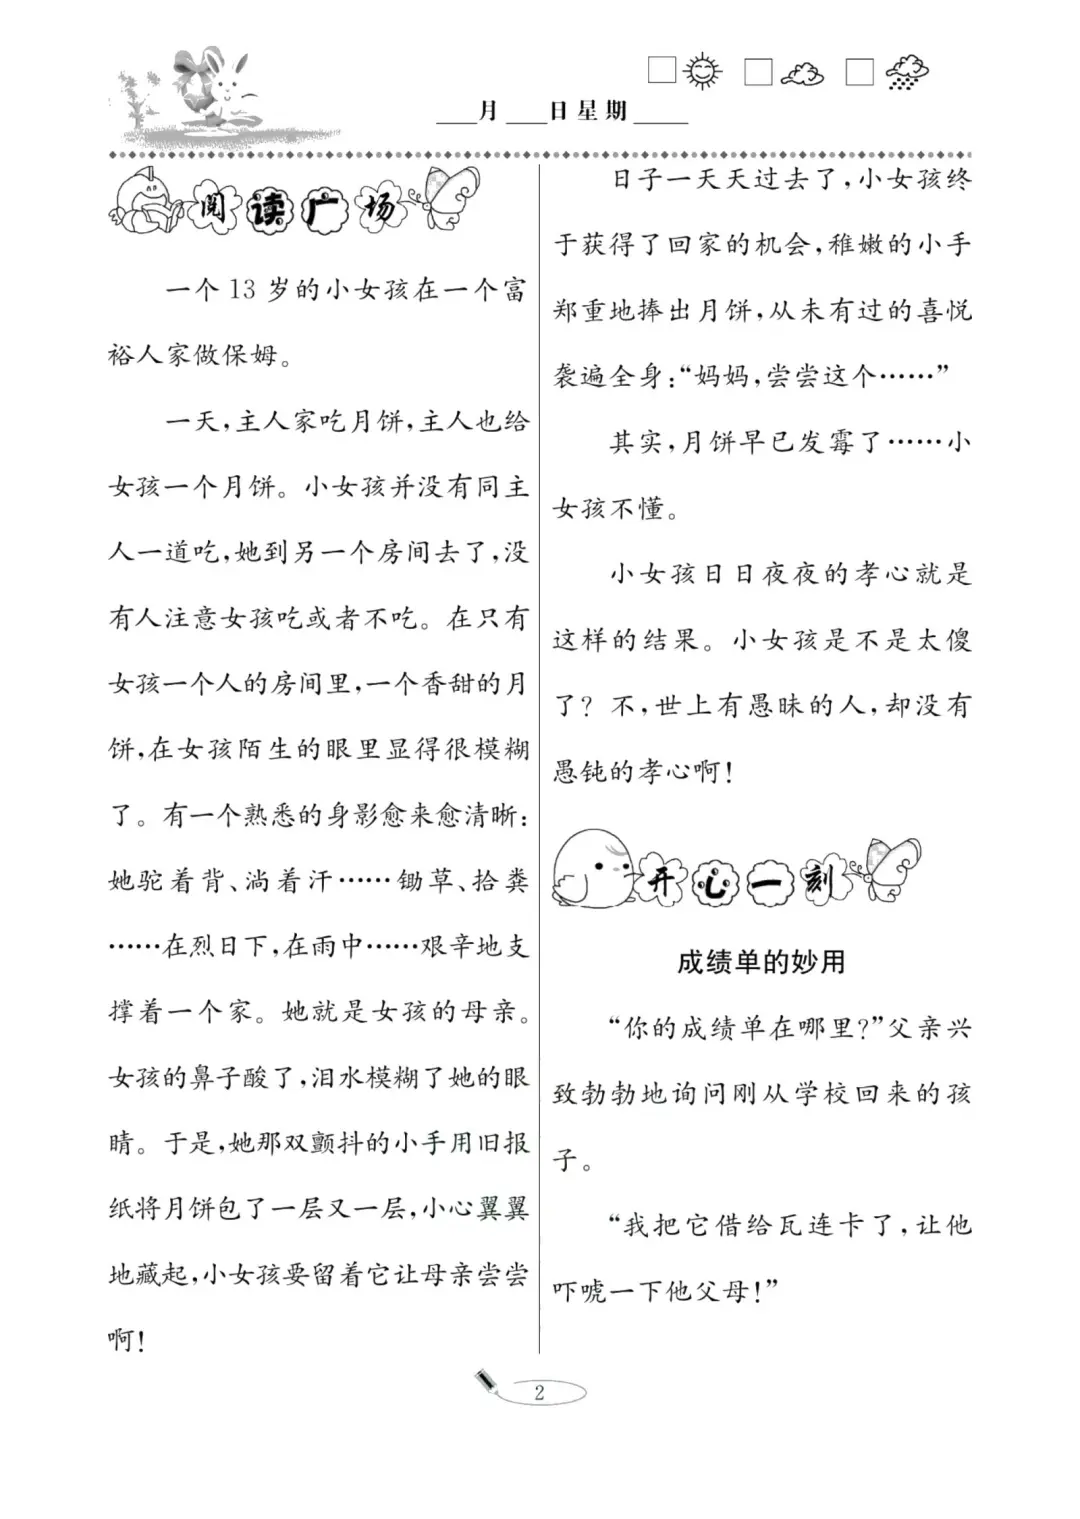 ____月____日星期_____
阅读广场
一个13岁的小女孩在一个富
裕人家做保姆。
一天,主人家吃月饼,主人也给
女孩一个月饼。小女孩并没有同主
人一道吃,她到另一个房间去了,没
有人注意女孩吃或者不吃。在只有
女孩一个人的房间里,一个香甜的月
饼,在女孩陌生的眼里显得很模糊
了。有一个熟悉的身影愈来愈清晰:
她驼着背、淌着汗……锄草、拾粪
……在烈日下,在雨中……艰辛地支
撑着一个家。她就是女孩的母亲。
女孩的鼻子酸了,泪水模糊了她的眼
睛。于是,她那双颤抖的小手用旧报
纸将月饼包了一层又一层,小心翼翼
地藏起,小女孩要留着它让母亲尝尝
啊!
日子一天天过去了,小女孩终
于获得了回家的机会,稚嫩的小手
郑重地捧出月饼,从未有过的喜悦
袭遍全身:“妈妈,尝尝这个……”
其实,月饼早已发霉了……小
女孩不懂。
小女孩日日夜夜的孝心就是
这样的结果。小女孩是不是太傻
了?不,世上有愚昧的人,却没有
愚钝的孝心啊!
开心一刻
成绩单的妙用
“你的成绩单在哪里?”父亲兴
致勃勃地询问刚从学校回来的孩
子。
“我把它借给瓦连卡了,让他
吓唬一下他父母!”
2